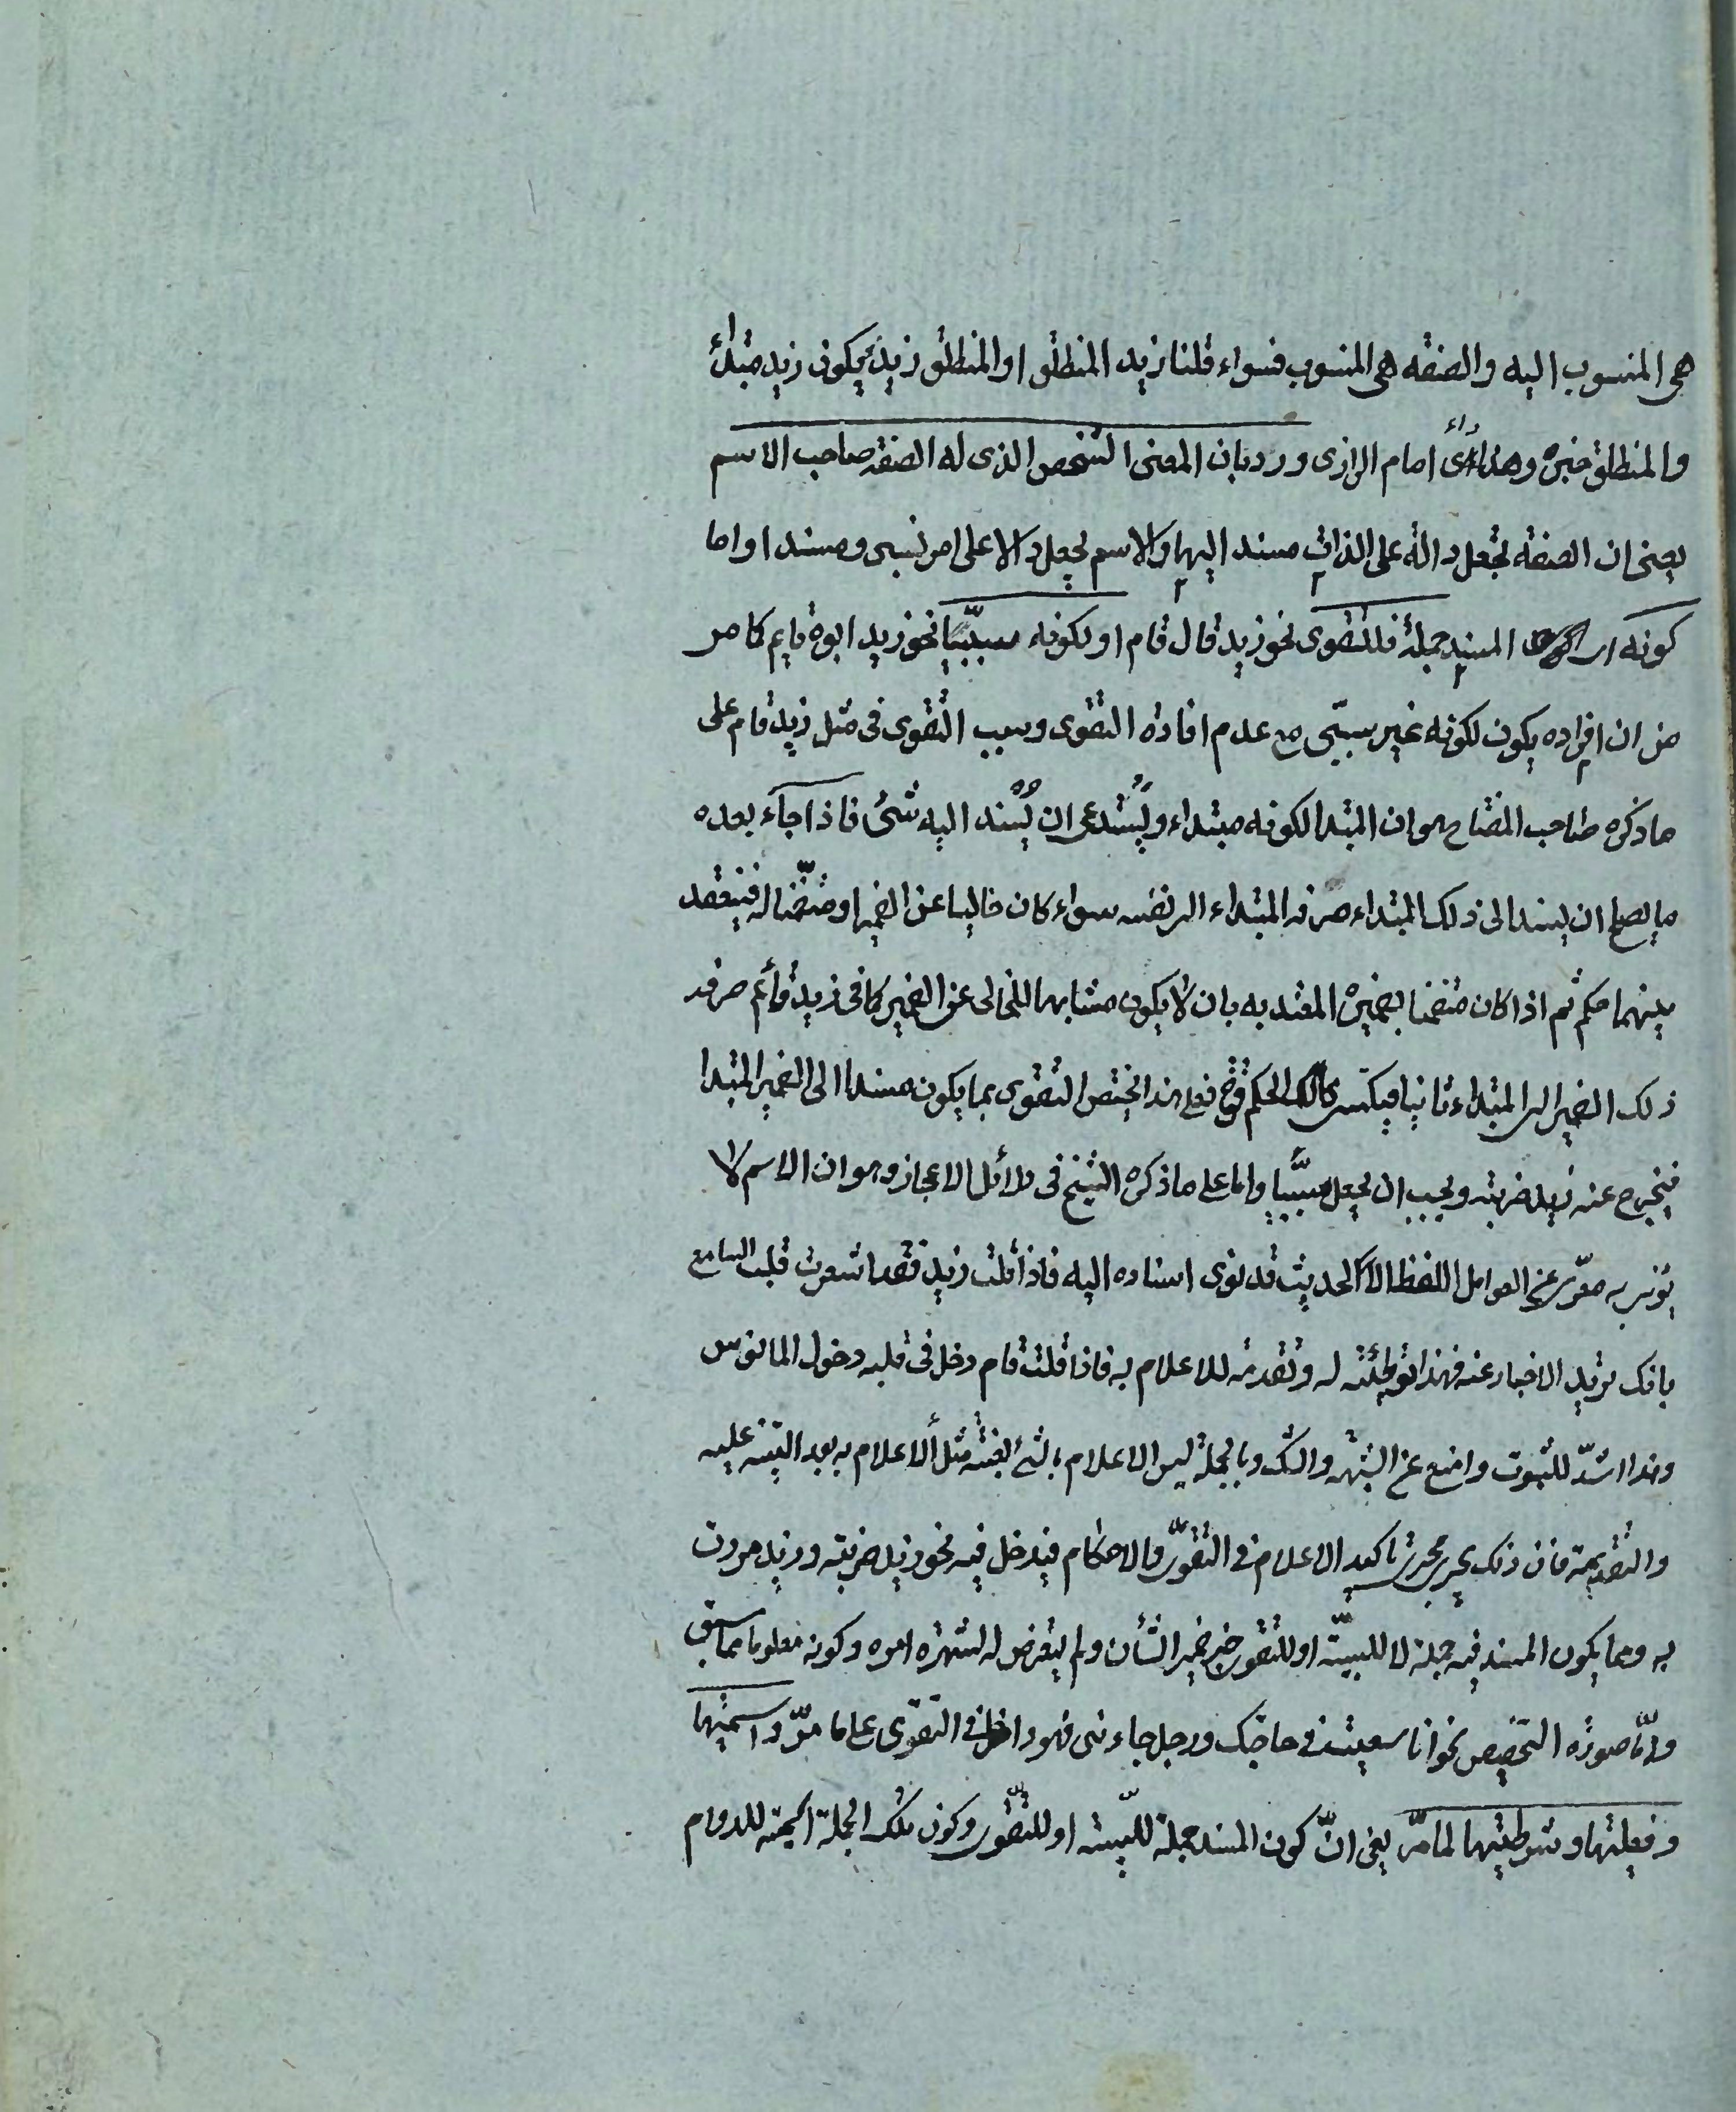 هى المنسوب اليه والصفه هى المنسوب فسواء قلنا زيد المنطلق او المنطلق زيد يكون زيد مبتداء
والمنطلق خبره وهذا راى امام الرازى وردبان المعنى الشخص الذى له الصفه صاحب الاسم
يعنى ان الصفه تجعل دالة على الذات مسند اليها والاسم يجعل دالا على امر نسبى ومسندا واما
كونه اى المسند جملة فللتقوى نحو زيد قال قام او لكونه سببيّا نحو زيد ابوه قايم كما مر
من ان افراده يكون لكونه غير سببّى مع عدم افادة التقوى وسبب التقوى فى مثل زيد قام على
ما ذكره صاحب المفتاح هو ان المبتدا لكونه مبتداء ويستدعى ان يُسند اليه شئ فاذا جآء بعده
ما يصلح ان يسند الى ذلك المبتداء صرفه المبتداء الى نفسه سواء كان خاليا عن الضمير او متضمّنا له فينعقد
بينهما حكم ثم اذا كان متضمنا بضميره المعتد به بان لا يكون مشابها للخالى عن الضمير كما فى زيد قائم صرفه
ذلك الضمير الى المبتداء ثانيا فيكتسى الحكم قوة فعلى هذا يختص التقوى بما يكون مسندا الى الضمير المبتدا
فيخرج عنه زيد ضربته ويجب ان يجعل سببيّا واما على ما ذكره الشيخ فى دلائل الاعجاز وهو ان الاسم لا
يؤتى به معرّى عن العوامل اللفظ الا لحديث قد نوى اسناده اليه فاذا قلت زيد فقد اشعرت قلب السامع
بانك تريد الاخبار عنه فهذا توطئة له وتقدمة للاعلام به فاذا قلت قام دخل فى قلبه دخول المانوس
وهذا اشدّ للثبوت وامنع عن الشبهة والشك وبالجملة ليس الاعلام بالشئ بغتة مثل الاعلام به بعد التنبيه عليه
والتقدمة فان ذلك يجرى مجرى تاكيد الاعلام فى التقوّى والاحكام فيدخل فيه نحو زيد ضربته وزيد مررت
به ومما يكون المسند فيه جملة لا للسببيّة او للتقوى خبر ضمير الشأن ولم يتعرض له لشهرة امره وكونه معلوما مما سبق
وامّا صورة التخصيص نحو انا سعيت فى حاجتك ورجل جاءنى فهو داخل فى التقوّى على ما مرّ واسميتها
وفعليتها وشرطيتها لما مرّ يعنى انّ كون المسند جملة للسببيّة او للتقوّى وكون تلك الجملة اسمية للدوام